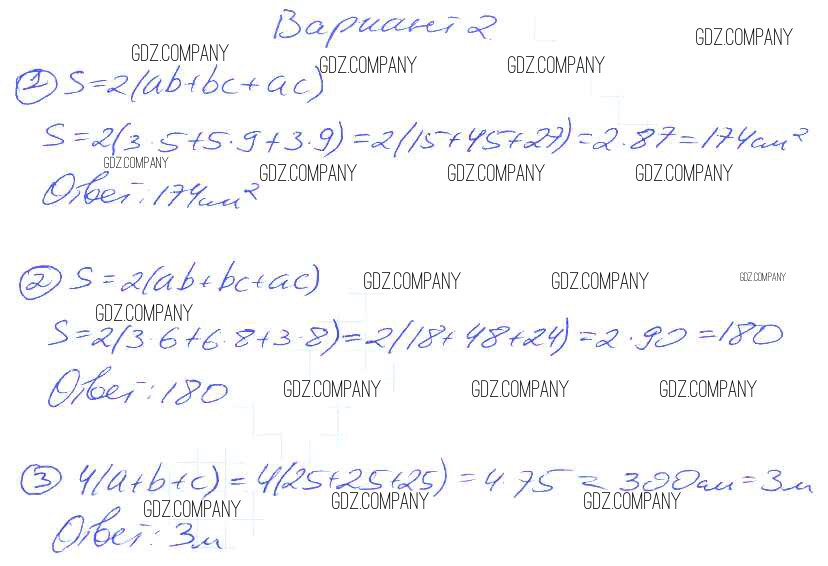 Вариант 2
GDZ.COMPANY GDZ.COMPANY GDZ.COMPANY GDZ.COMPANY
① S=2(ab+bc+ac)
S=2(3·5+5·9+3·9)=2(15+45+27)=2·87=174см²
GDZ.COMPANY GDZ.COMPANY GDZ.COMPANY GDZ.COMPANY
Ответ: 174см²
② S=2(ab+bc+ac) GDZ.COMPANY GDZ.COMPANY GDZ.COMPANY
GDZ.COMPANY
S=2(3·6+6·8+3·8)=2(18+48+24)=2·90=180
Ответ: 180 GDZ.COMPANY GDZ.COMPANY GDZ.COMPANY
③ 4(a+b+c)=4(25+25+25)=4·75=300см=3м
GDZ.COMPANY GDZ.COMPANY GDZ.COMPANY
Ответ: 3м